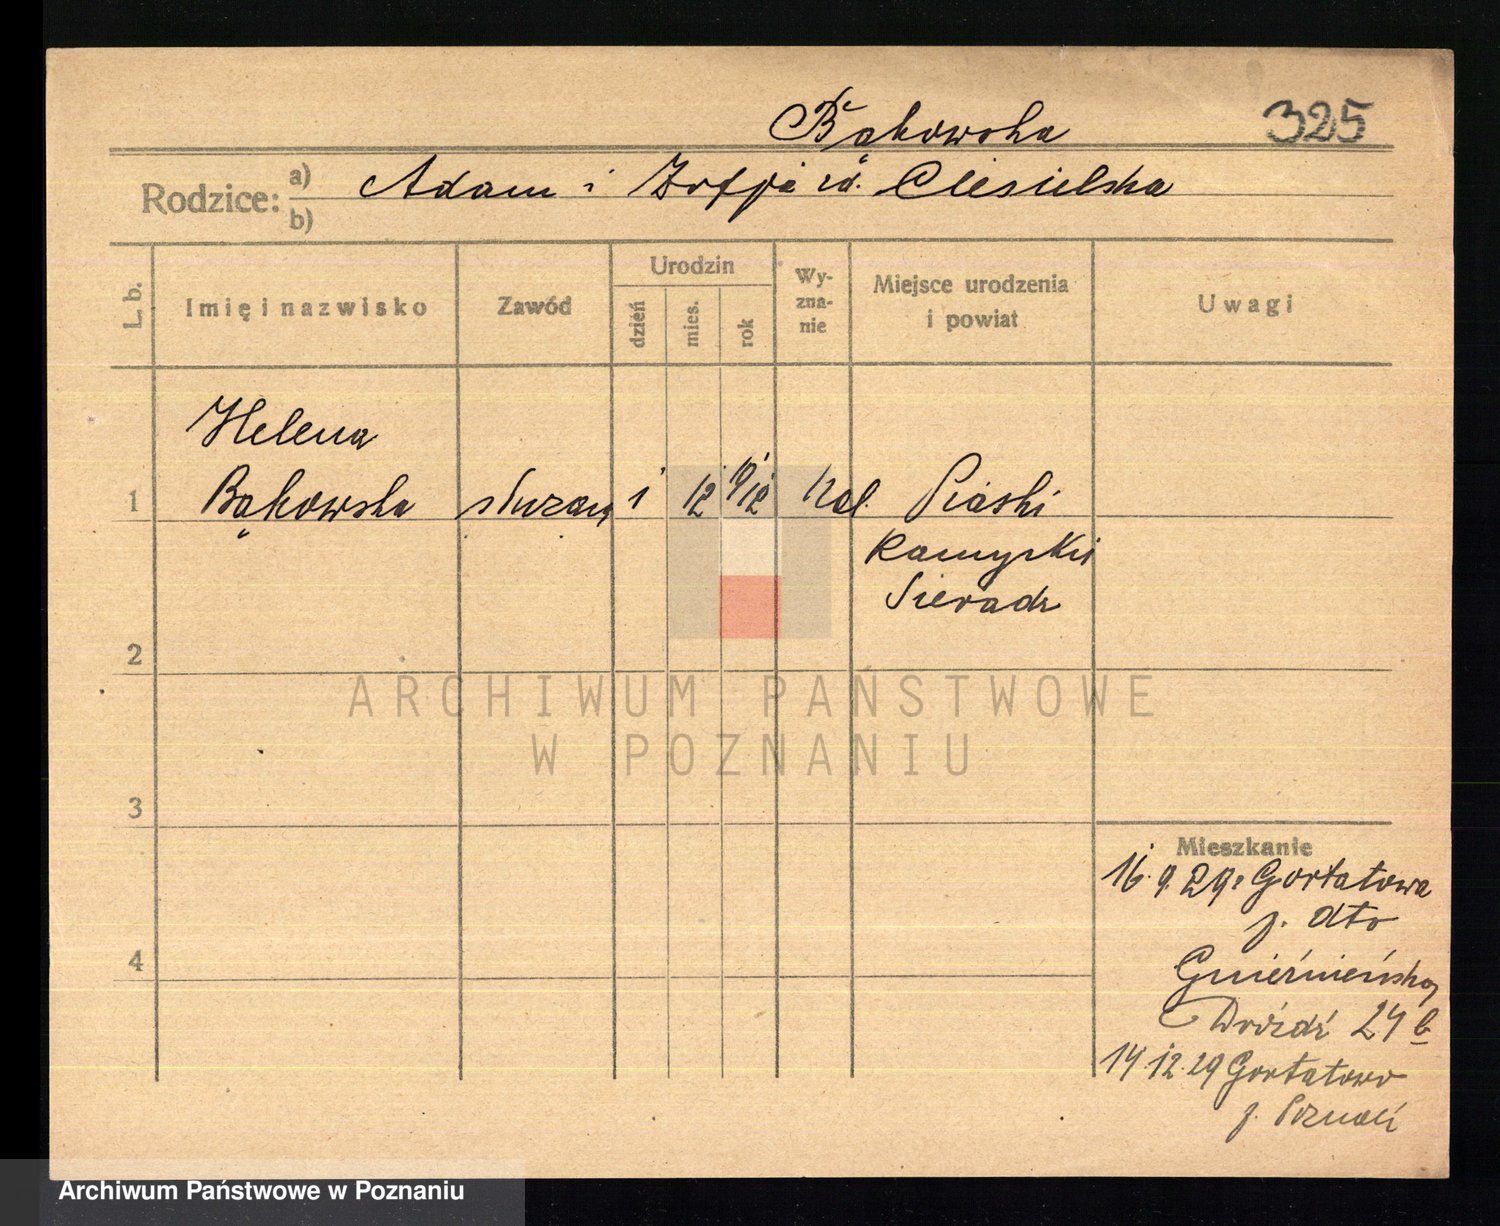 Bąkowska 325
Rodzice: a) Adam i Zofja zd. Ciesielska
b)
L. b. Imię i nazwisko Zawód Urodzin Wy- Miejsce urodzenia Uwagi
dzień mies. rok zna- i powiat
nie
Helena
1 Bąkowska służąca 1 12 912 kat. Piaski
Sieradz
2
ARCHIWUM PAŃSTWOWE
W POZNANIU
3
Mieszkanie
16.9.29. Gortatowa
p. dto
4
Gnieźnieńska
Dróżdż 24 b
14.12.29 Gortatowo
p. Poznań
Archiwum Państwowe w Poznaniu